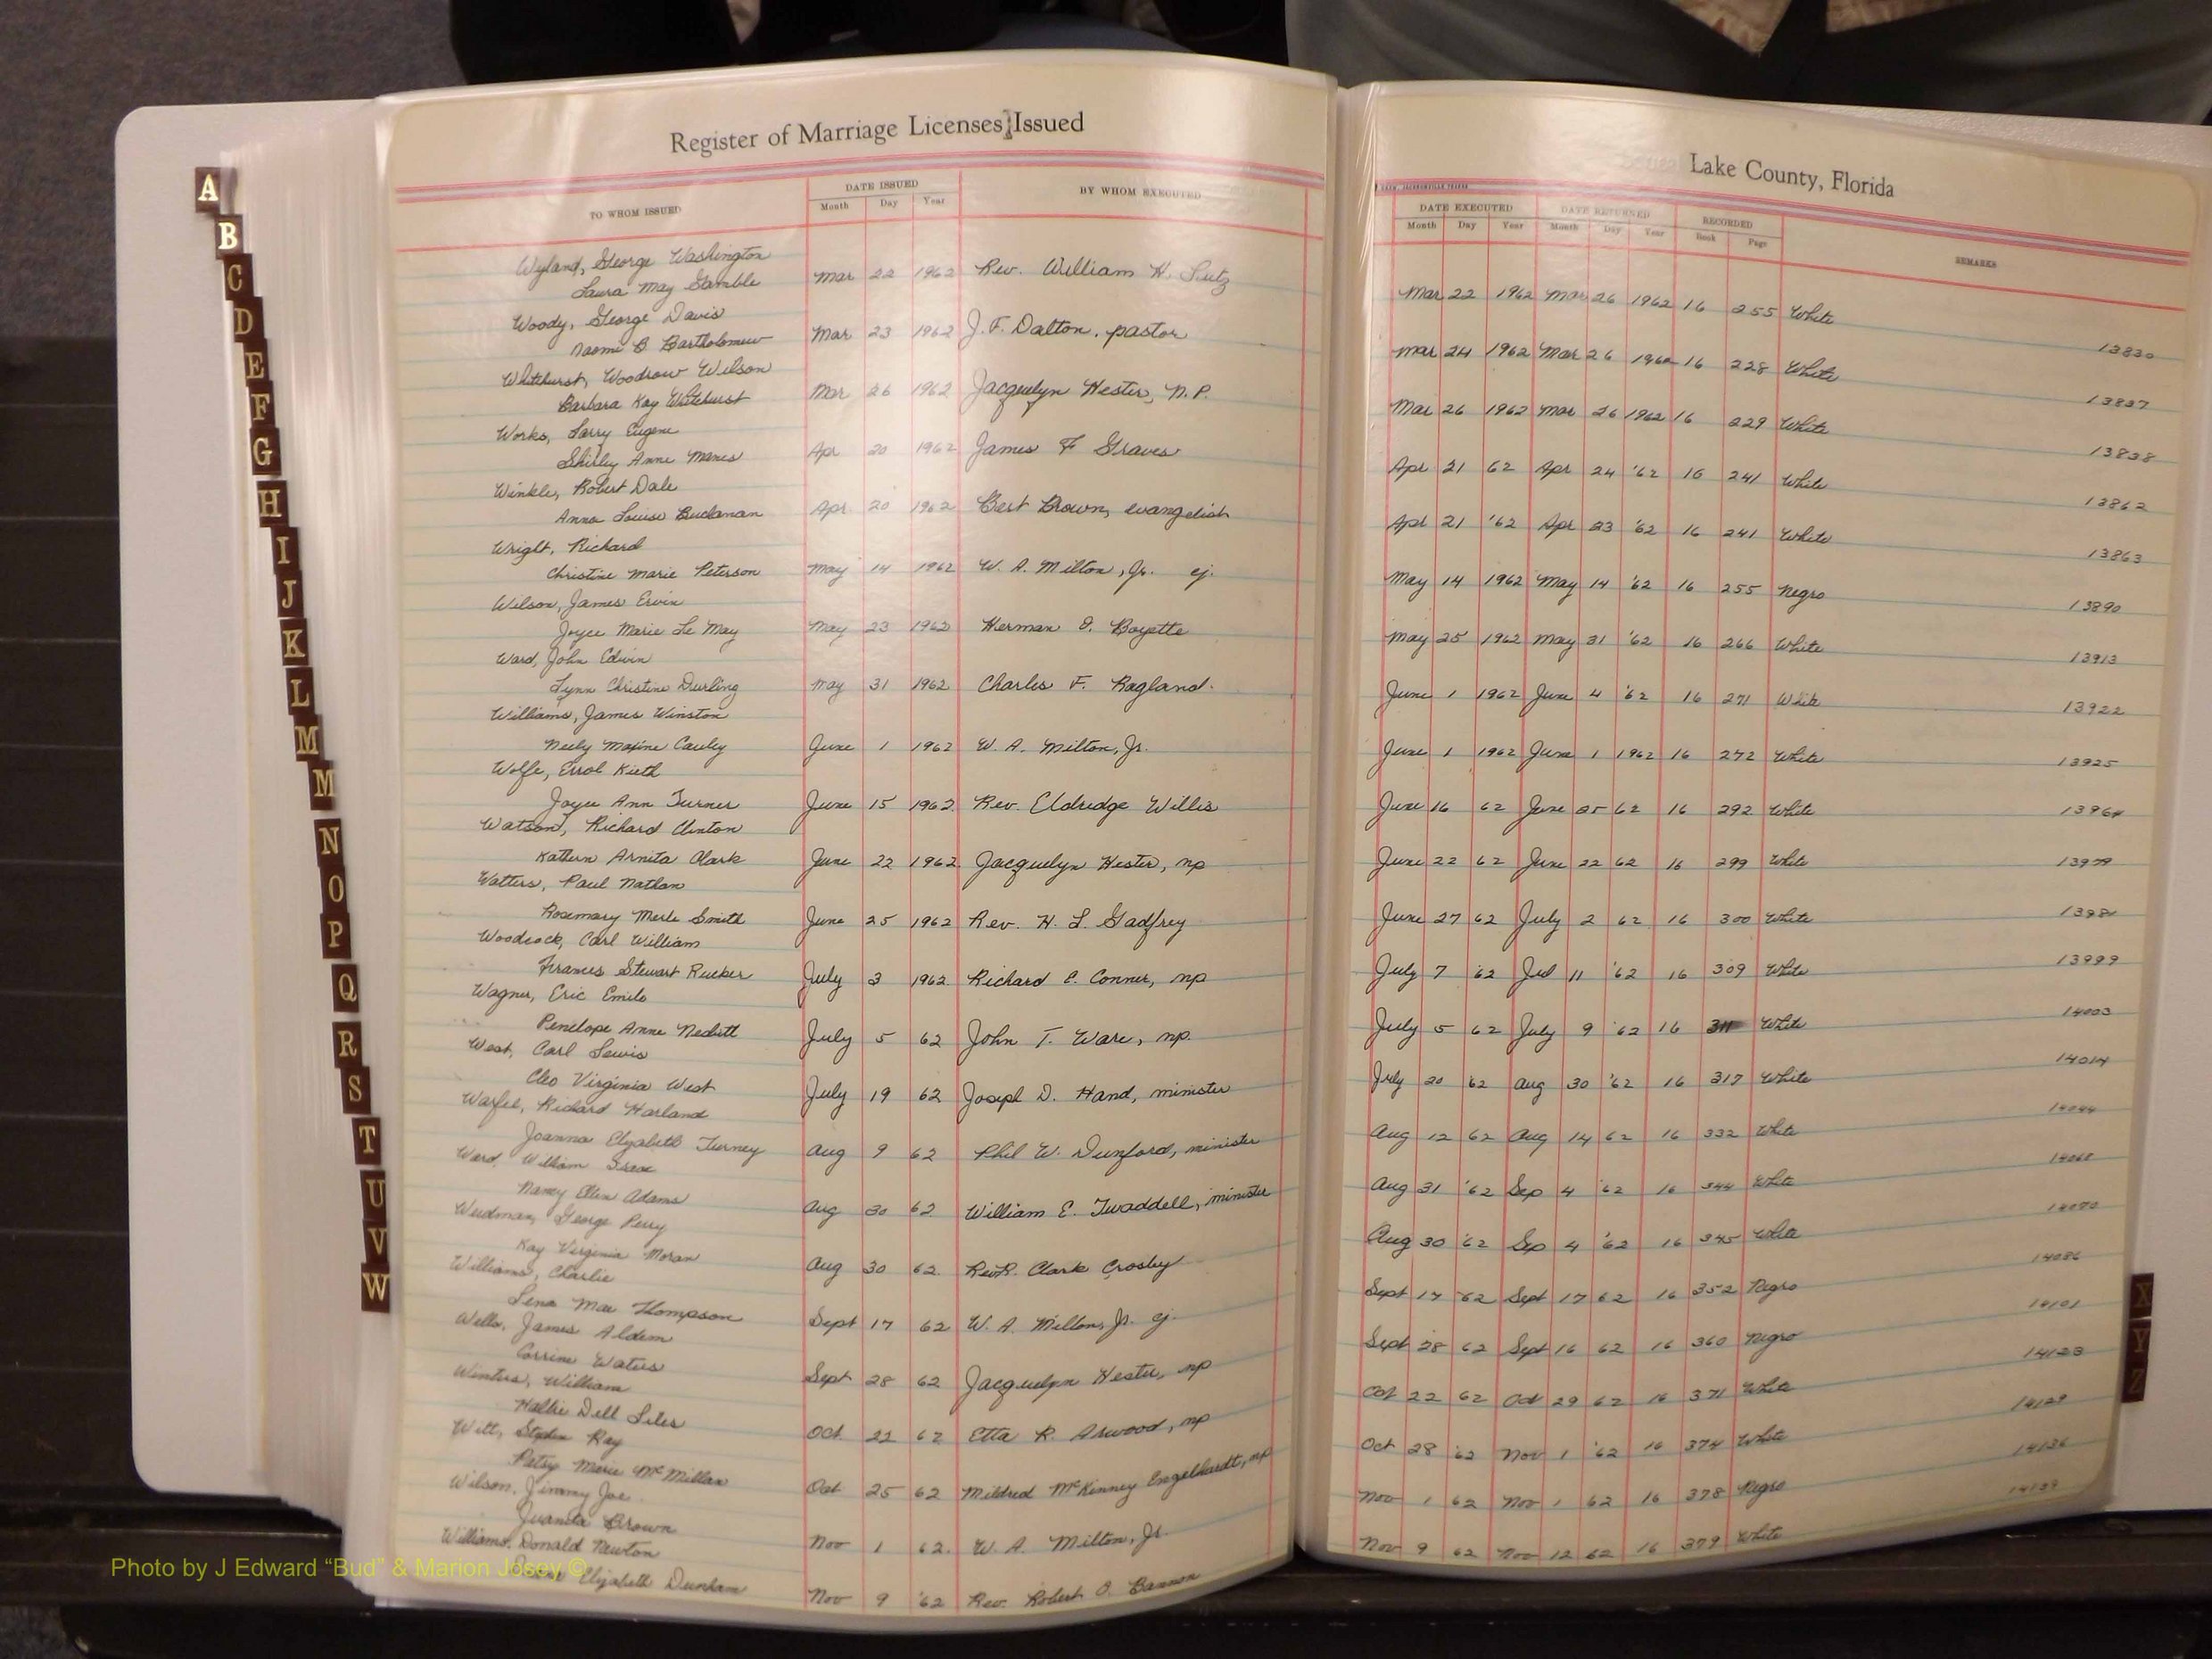 Register of Marriage Licenses Issued
Lake County, Florida
TO WHOM ISSUED
DATE ISSUED
Month Day Year
BY WHOM EXECUTED
DATE EXECUTED
Month Day Year
DATE RETURNED
Month Day Year
RECORDED
Book Page
REMARKS
Wyland, George Washington
Laura May Gamble Mar 22 1962 Rev. William H. Lutz Mar 22 1962 Mar 26 1962 16 255 White 13830
Woody, George Davis
Naomi B Bartholomew Mar 23 1962 J. F. Dalton, pastor Mar 24 1962 Mar 26 1962 16 228 White 13837
Whitehurst, Woodrow Wilson
Barbara Kay Whitehurst Mar 26 1962 Jacquelyn Hester, N.P. Mar 26 1962 Mar 26 1962 16 229 White 13838
Works, Larry Eugene
Shirley Anne Manes Apr 20 1962 James F Graves Apr 21 62 Apr 24 '62 16 241 White 13862
Winkle, Robert Dale
Anna Louise Buchanan Apr 20 1962 Brown, evangelist Apr 21 '62 Apr 23 '62 16 241 White 13863
Wright, Richard
Christine Marie Peterson May 14 1962 W. A. Milton, Jr. cj. May 14 1962 May 14 '62 16 255 Negro 13890
Wilson, James Ervin
Joyce Marie Le May May 23 1962 Herman O. Boyette May 25 1962 May 31 '62 16 266 White 13913
Ward, John Edwin
Lynn Christine Durling May 31 1962 Charles F. Ragland. June 1 1962 June 4 '62 16 271 White 13922
Williams, James Winston
Neely Maxine Cauley June 1 1962 W. A. Milton, Jr. June 1 1962 June 1 1962 16 272 White 13925
Wolfe, Errol Kieth
Joyce Ann Turner June 15 1962 Rev. Eldredge Willis June 16 62 June 25 62 16 292 White 13964
Watson, Richard Clinton
Kathern Arnita Clark June 22 1962 Jacquelyn Hester, np June 22 62 June 22 62 16 299 White 13979
Watters, Paul Nathan
Rosemary Merle Smith June 25 1962 Rev. H. L. Gadfrey June 27 62 July 2 62 16 300 White 13981
Woodcock, Carl William
Frances Stewart Rucker July 3 1962 Richard E. Conner, np July 7 '62 Jul 11 '62 16 309 White 13999
Wagner, Eric Emile
Penelope Anne July 5 62 John T. Ware, np. July 5 62 July 9 '62 16 311 White 14003
West, Carl Lewis
Cleo Virginia West July 19 62 Joseph D. Hand, minister July 20 '62 Aug 30 '62 16 317 White 14014
Warfel, Richard Harland
Joanna Elizabeth Turney Aug 9 62 Phil W. Dunford, minister Aug 12 62 Aug 14 62 16 332 White 14044
Ward, William
Nancy Ellen Adams Aug 30 62 William E. Twaddell, minister Aug 31 '62 Sep 4 '62 16 344 White
George Perry
Kay Virginia Moran Aug 30 62 Rev. R. Clark Crosby Aug 30 '62 Sep 4 '62 16 345 White
Williams, Charlie
Lena Mae Thompson Sept 17 62 W. A. Milton, Jr. cj. Sept 17 '62 Sept 17 62 16 352 Negro 14086
Wells, James Aldem
Corrine Waters Sept 28 62 Jacquelyn Hester, np Sept 28 62 Sept 16 62 16 360 Negro 14101
Winters, William
Hallie Dell Oct 22 62 Etta R. Arwood, np Oct 22 62 Oct 29 62 16 371 White 14123
Witt, Stephen Ray
Patsy Marie McMillan Oct 25 62 Mildred McKinney Engelhardt, np Oct 28 '62 Nov 1 '62 16 374 White 14129
Wilson, Jimmy Joe
Juanita Brown Nov 1 62. W. A. Milton, Jr. Nov 1 62 Nov 1 62 16 378 Negro 14136
Williams, Donald Newton
Elizabeth Dunham Nov 9 '62 Rev. Robert O. Bannon Nov 9 62 Nov 12 62 16 379 White 14139
A
B
C
D
E
F
G
H
I
J
K
L
M
M
N
O
P
Q
R
S
T
U
V
W
X
Y
Z
Photo by J Edward “Bud” & Marion Josey ©